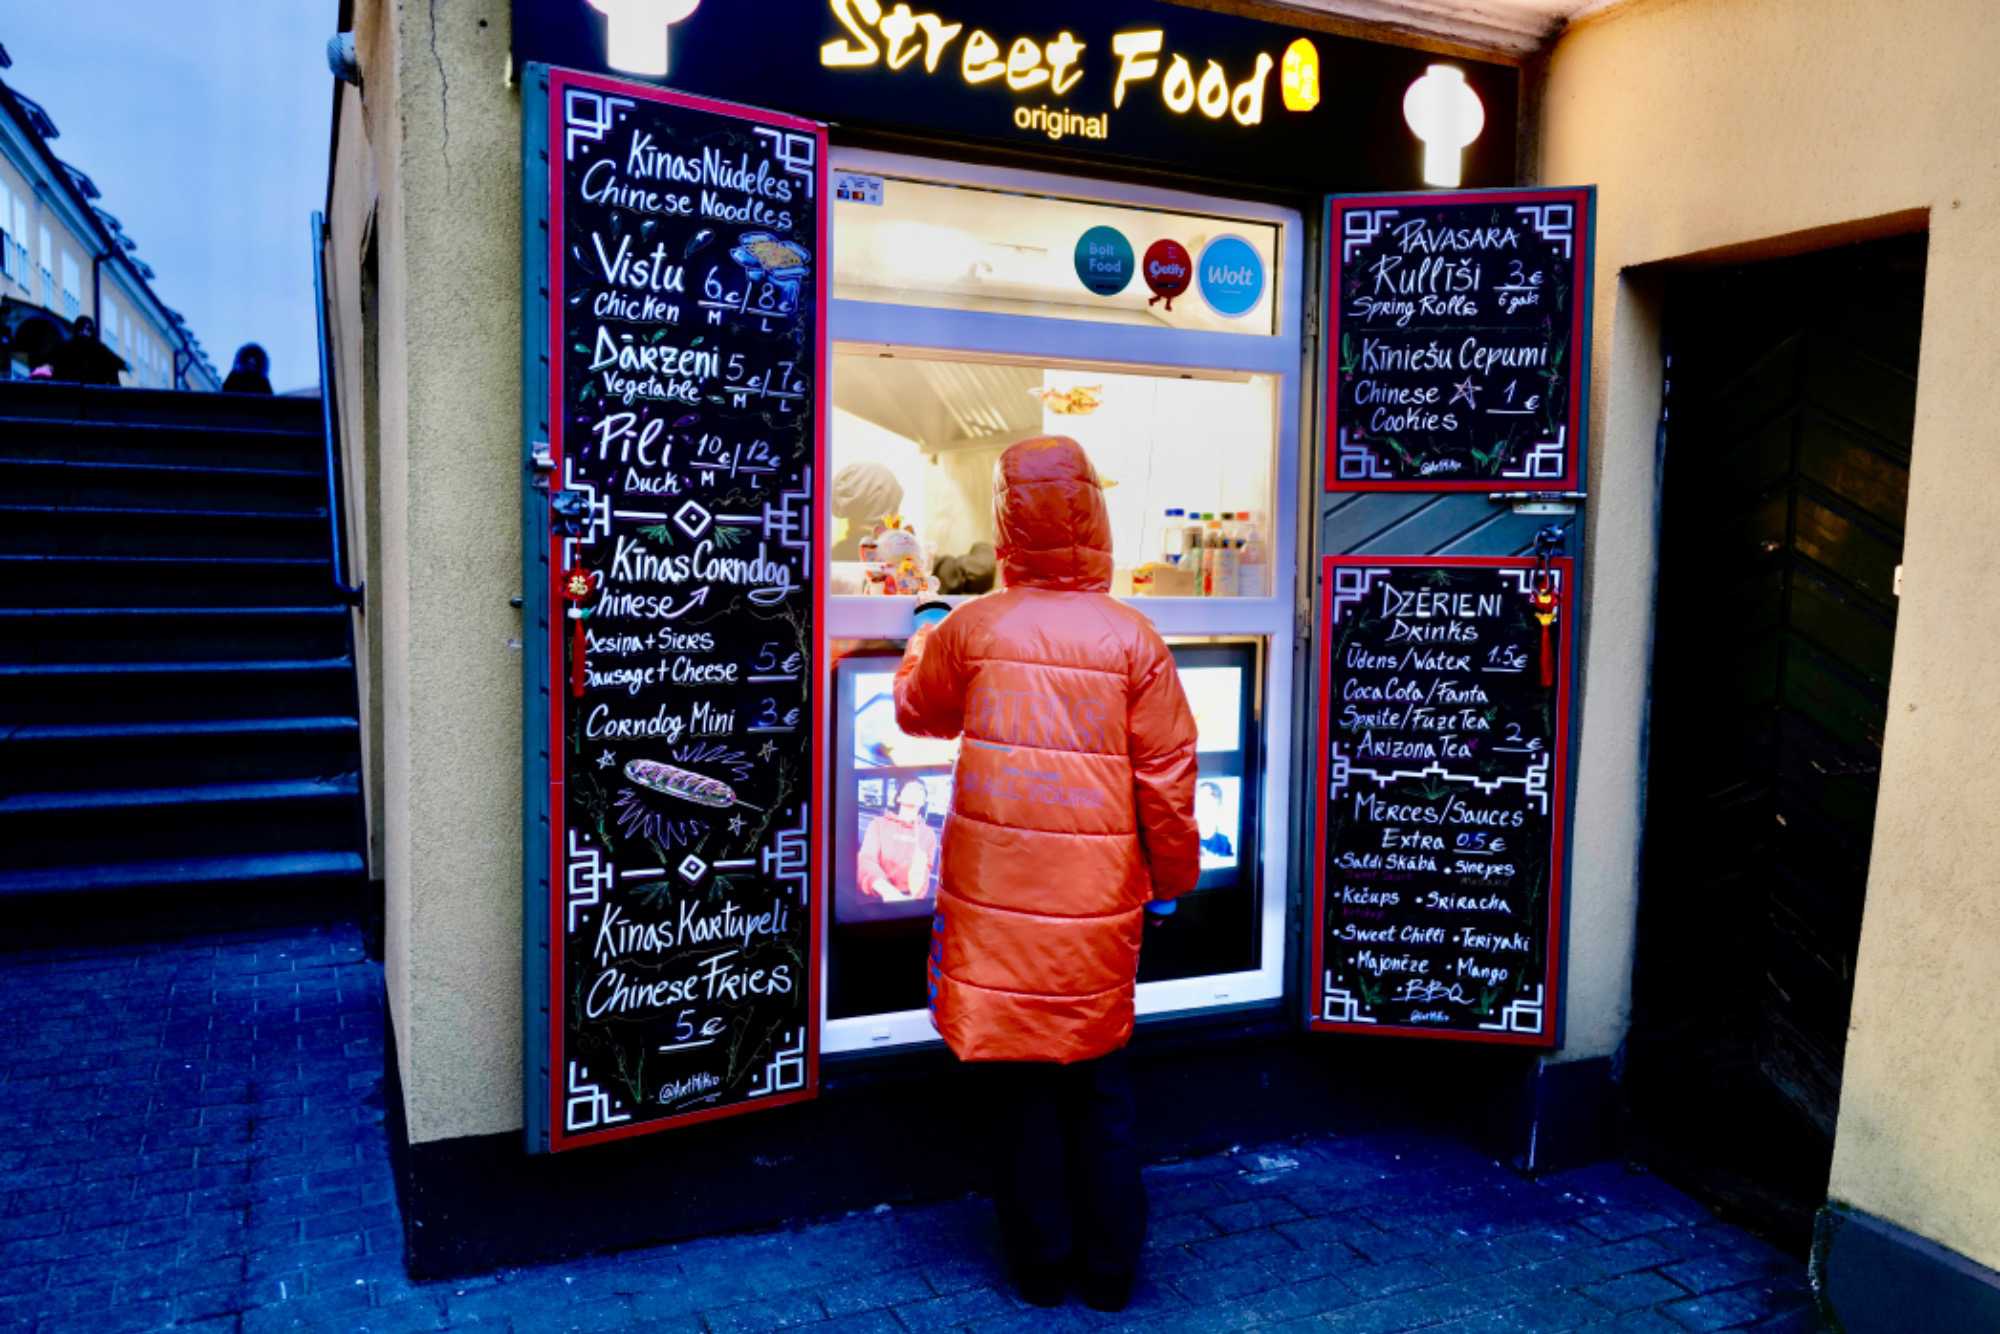 Street Food
original
Ķīnas Nūdeles
Chinese Noodles
Vistu
Chicken
6€/8€
M L
Dārzeņi
Vegetable
5€/7€
M L
Pīli
Duck
10€/12€
M L
Ķīnas Corndog
Chinese
Desiņa+Siers
Sausage+Cheese 5€
Corndog Mini 3€
Ķīnas Kartupeļi
Chinese Fries
5€
@ArtMiKo
Bolt
Food
Wolt
Pavasara
Rullīši 3€
Spring Rolls 6 gab.
Ķīniešu Cepumi
Chinese
Cookies 1€
@ArtMiKo
Dzērieni
Drinks
Ūdens/Water 1.5€
Coca Cola/Fanta
Sprite/Fuze Tea
Arizona Tea 2€
Mērces/Sauces
Extra 0.5€
•Saldi Skābā •Sinepes
•Kečups •Sriracha
•Sweet Chilli •Teriyaki
•Majonēze •Mango
•BBQ
@ArtMiKo